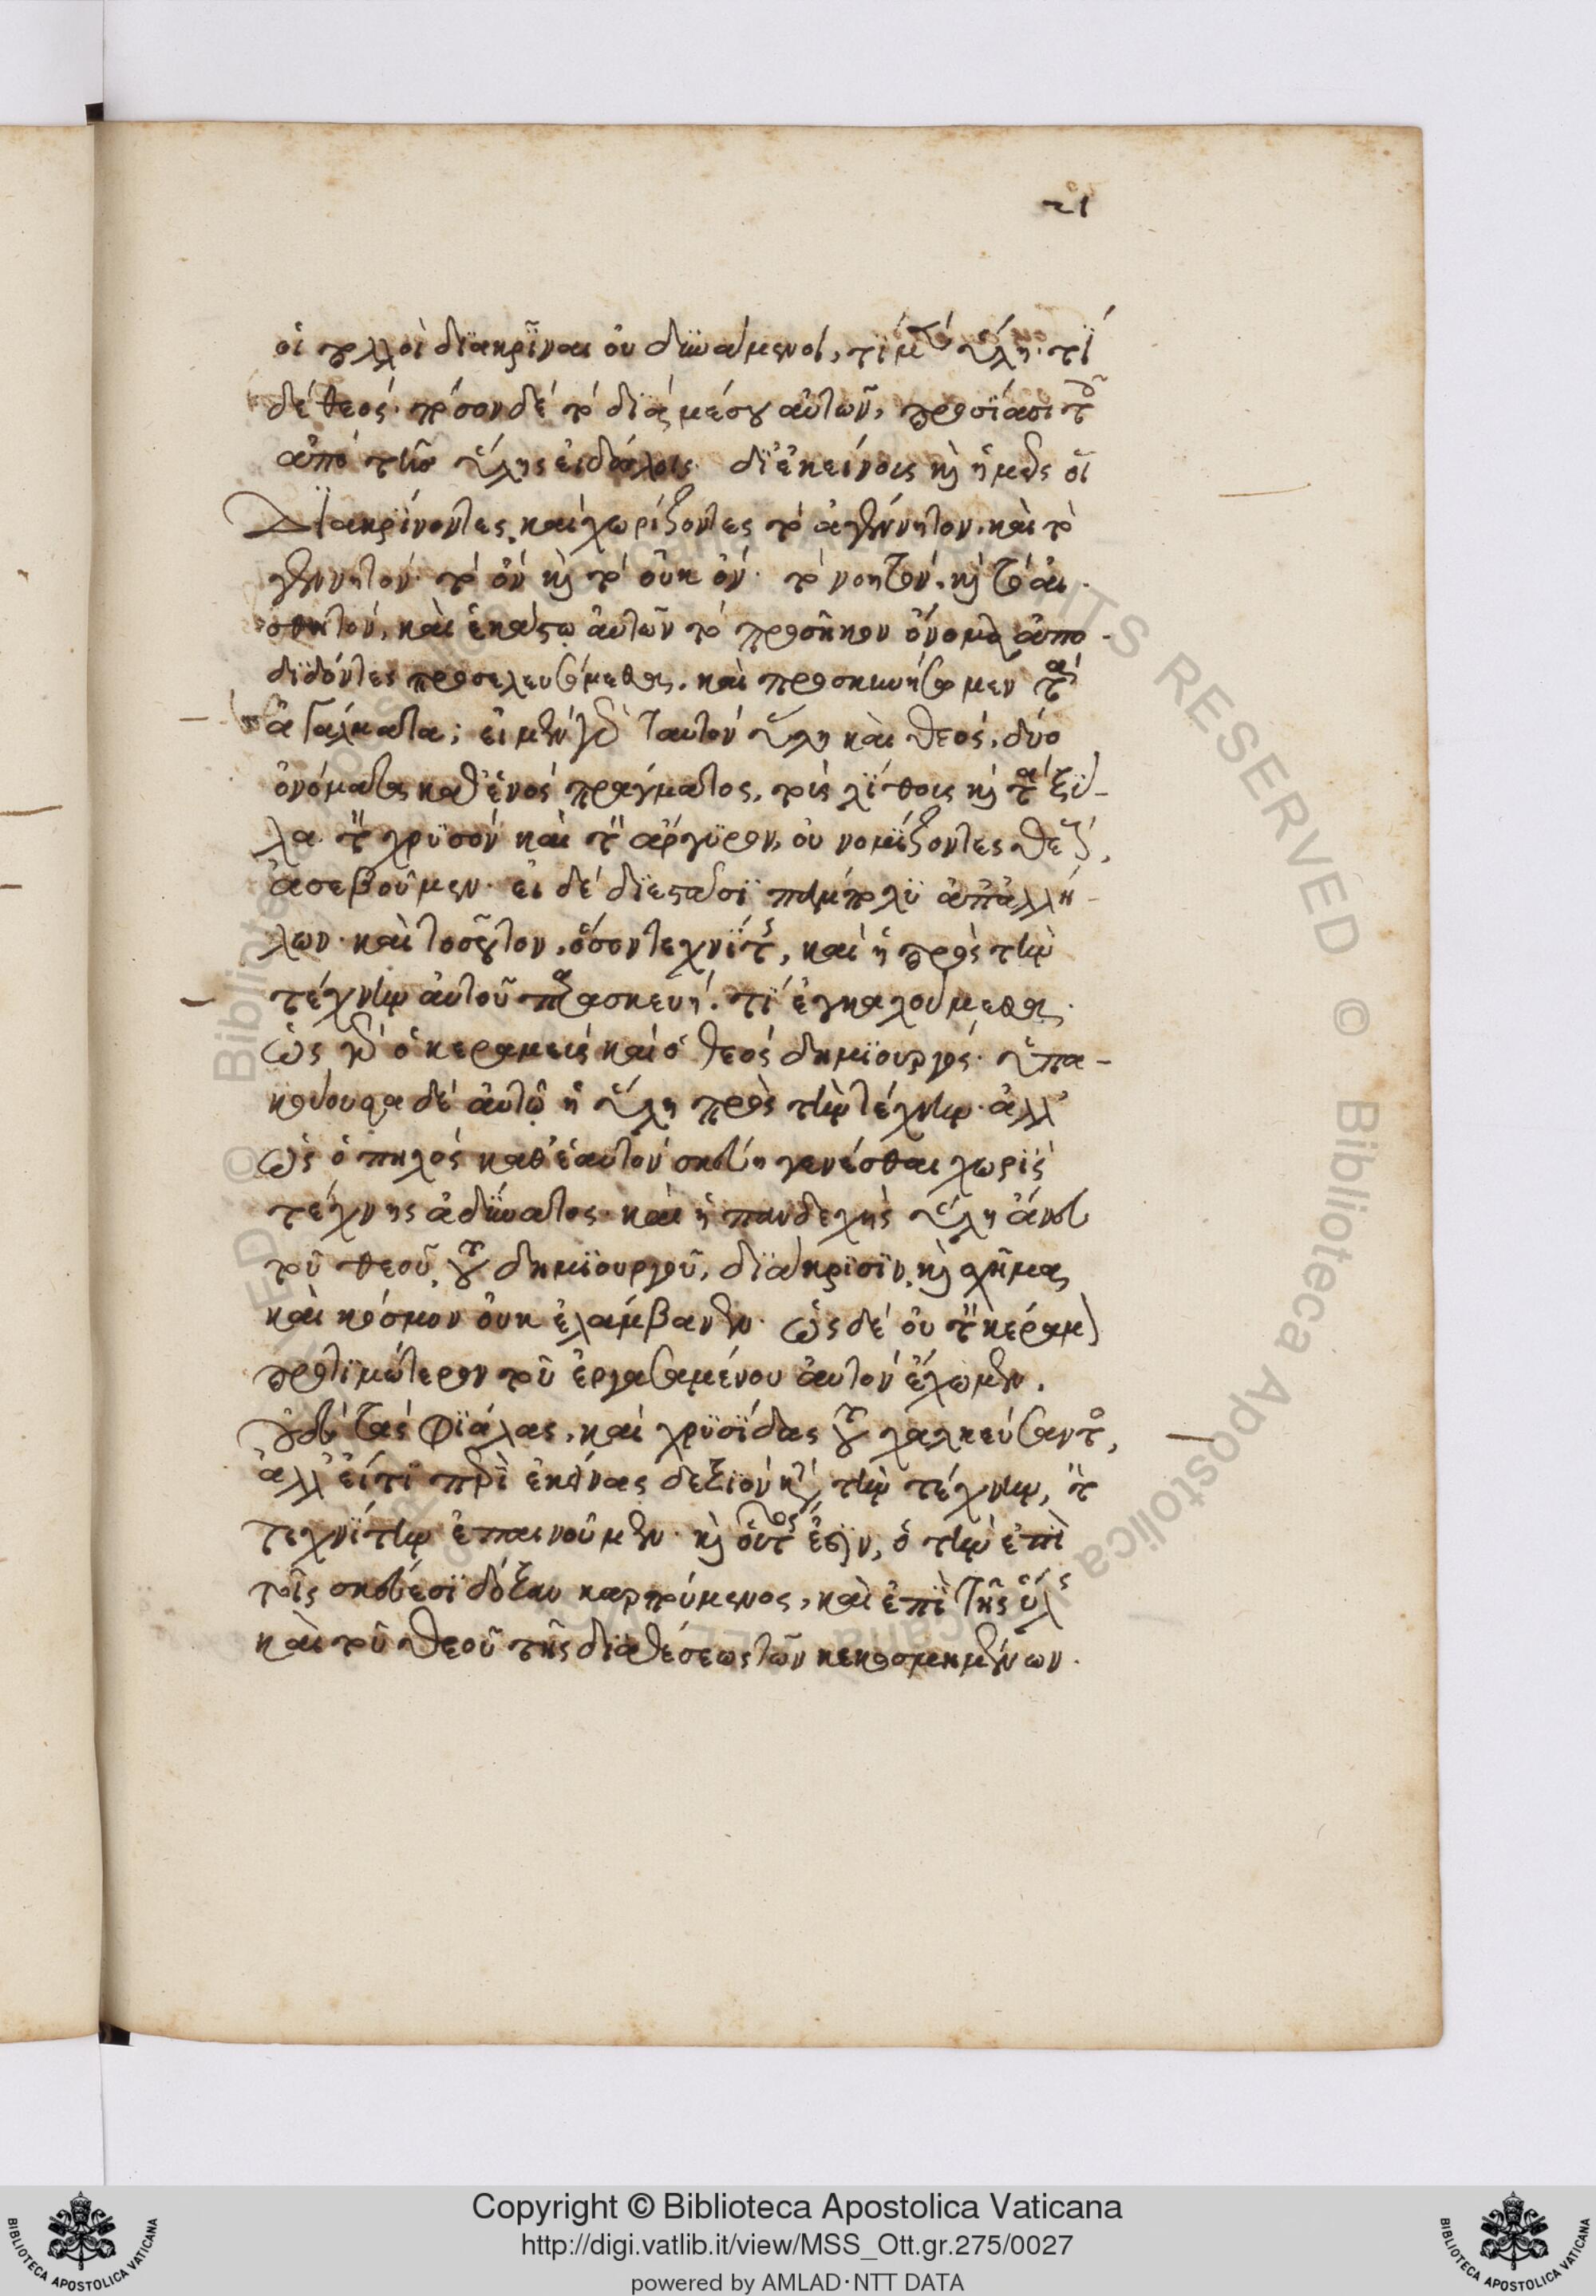 21
οἱ πολλοὶ διακρῖναι οὐ δυνάμενοι, τί μὲν ὕλη· τί
δὲ θεός· πόσον δὲ τὸ διὰ μέσου αὐτῶν, προσίασι τοῖς
ἀπὸ τῆς ὕλης εἰδώλοις· δι' ἐκείνους καὶ ἡμεῖς οἱ
Διακρίνοντες καὶ χωρίζοντες τὸ ἀγέννητον, καὶ τὸ
γεννητόν· τὸ ὂν καὶ τὸ οὐκ ὄν· τὸ νοητόν, καὶ τὸ αἰ-
σθητόν, καὶ ἑκάστῳ αὐτῶν τὸ προσῆκον ὄνομα ἀπο-
διδόντες προσελευσόμεθα, καὶ προσκυνήσομεν τὰ
ἀγάλματα; εἰ μὲν γὰρ ταυτὸν ὕλη καὶ θεός, δύο
ὀνόματα καθ' ἑνὸς πράγματος, τοὺς λίθους καὶ τὰ ξύ-
λα τὸν χρυσὸν καὶ τὸν ἄργυρον, οὐ νομίζοντες θεούς,
ἀσεβοῦμεν· εἰ δὲ διεστᾶσι πάμπολυ ἀπ' ἀλλή-
λων· καὶ τοσοῦτον, ὅσον τεχνίτης, καὶ ἡ πρὸς τὴν
τέχνην αὐτοῦ παρασκευή· τί ἐγκαλούμεθα·
ὡς γὰρ ὁ κεραμεὺς καὶ ὁ θεὸς δημιουργός· ὑπα-
κούουσα δὲ αὐτῷ ἡ ὕλη πρὸς τὴν τέχνην· ἀλλ'
ὡς ὁ πηλὸς καθ' ἑαυτὸν σκεύη γενέσθαι χωρὶς
τέχνης ἀδύνατος· καὶ ἡ πανδεχὴς ὕλη ἄνευ
τοῦ θεοῦ τοῦ δημιουργοῦ, διάκρισιν καὶ σχῆμα
καὶ κόσμον οὐκ ἐλάμβανεν· ὡς δὲ οὐ τὸν κέραμον
προτιμότερον τοῦ ἐργασαμένου αὐτὸν ἔχομεν.
οὐδὲ τὰς φιάλας, καὶ χρυσίδας τοῦ χαλκεύσαντος,
ἀλλ' εἴ τι περὶ ἐκείνας δεξιὸν κατὰ τὴν τέχνην, τὸν
τεχνίτην ἐπαινοῦμεν· καὶ οὗτός ἐστιν, ὁ τὴν ἐπὶ
τοῖς σκεύεσι δόξαν καρπούμενος, καὶ ἐπὶ τῆς ὕλης
καὶ τοῦ θεοῦ τῆς διαθέσεως τῶν κεκοσμημένων.
Copyright © Biblioteca Apostolica Vaticana
http://digi.vatlib.it/view/MSS_Ott.gr.275/0027
powered by AMLAD·NTT DATA
BIBLIOTECA APOSTOLICA VATICANA
BIBLIOTECA APOSTOLICA VATICANA